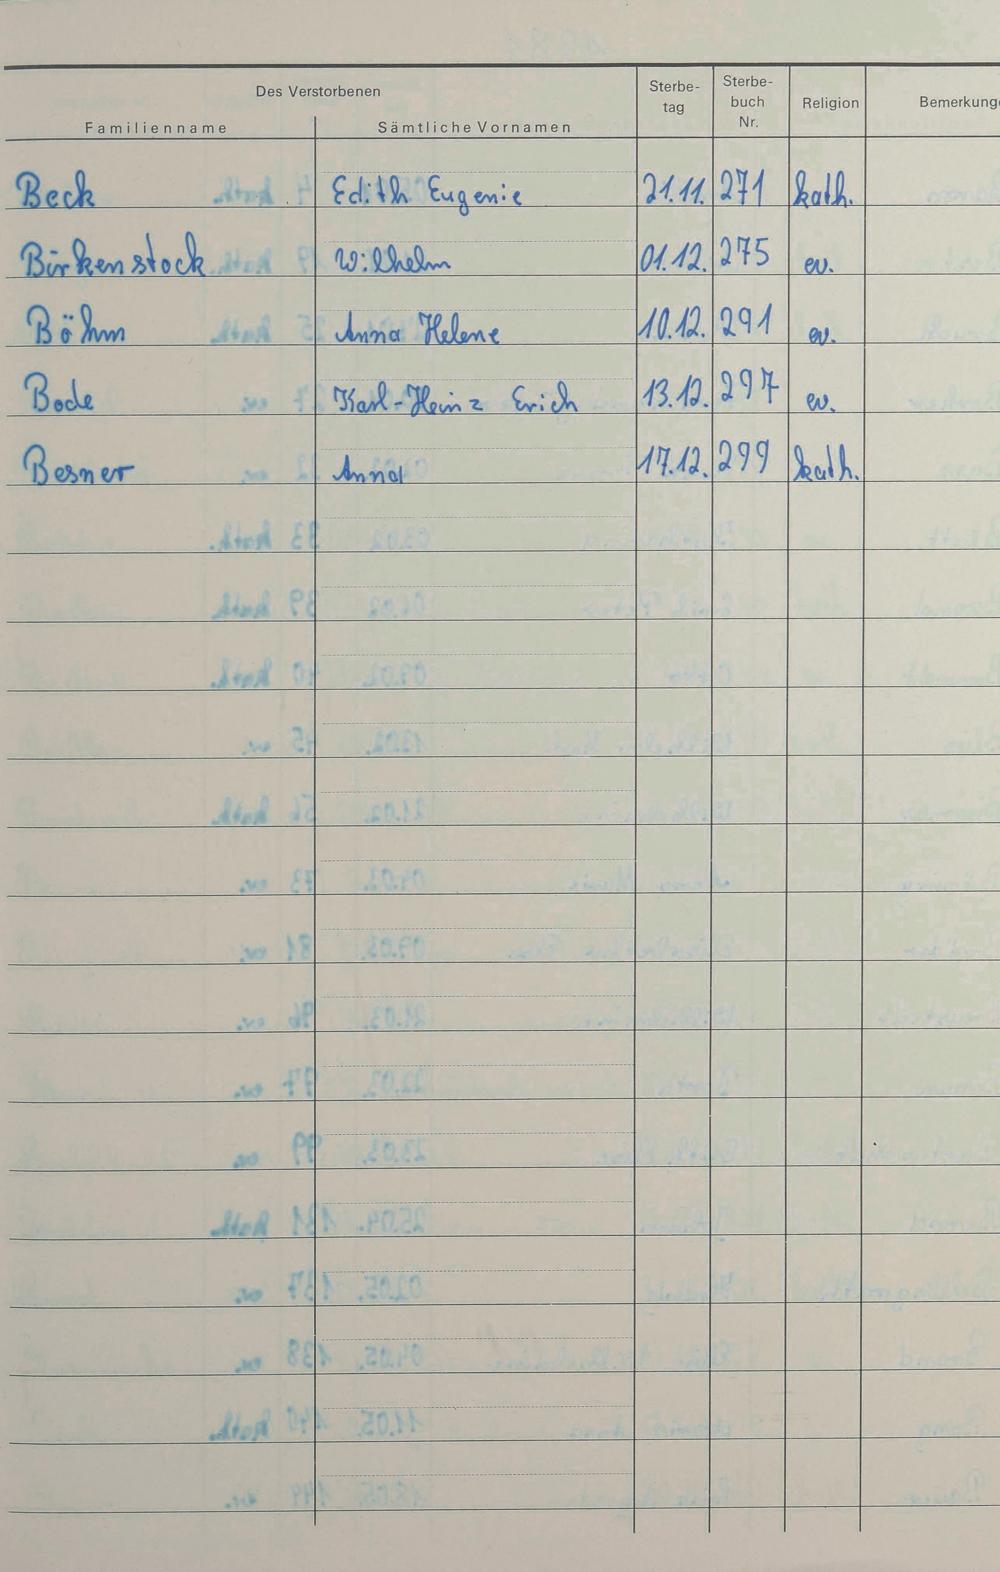 Des Verstorbenen
Familienname Sämtliche Vornamen Sterbe-
tag Sterbe-
buch
Nr. Religion Bemerkung
Beck Edith Eugenie 21.11. 271 kath.
Birkenstock Wilhelm 01.12. 275 ev.
Böhm Anna Helene 10.12. 291 ev.
Bode Karl-Heinz Erich 13.12. 297 ev.
Besner Anna 17.12. 299 kath.